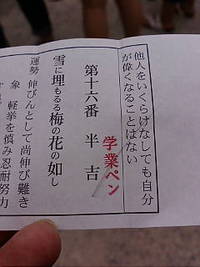 他人をいくらけなしても自分
が偉くなることはない
第十六番 半吉
学業ペン
雪に埋もるる梅の花の如し
運勢 伸びんとして尚伸び難き
象 軽挙を慎み忍耐努力